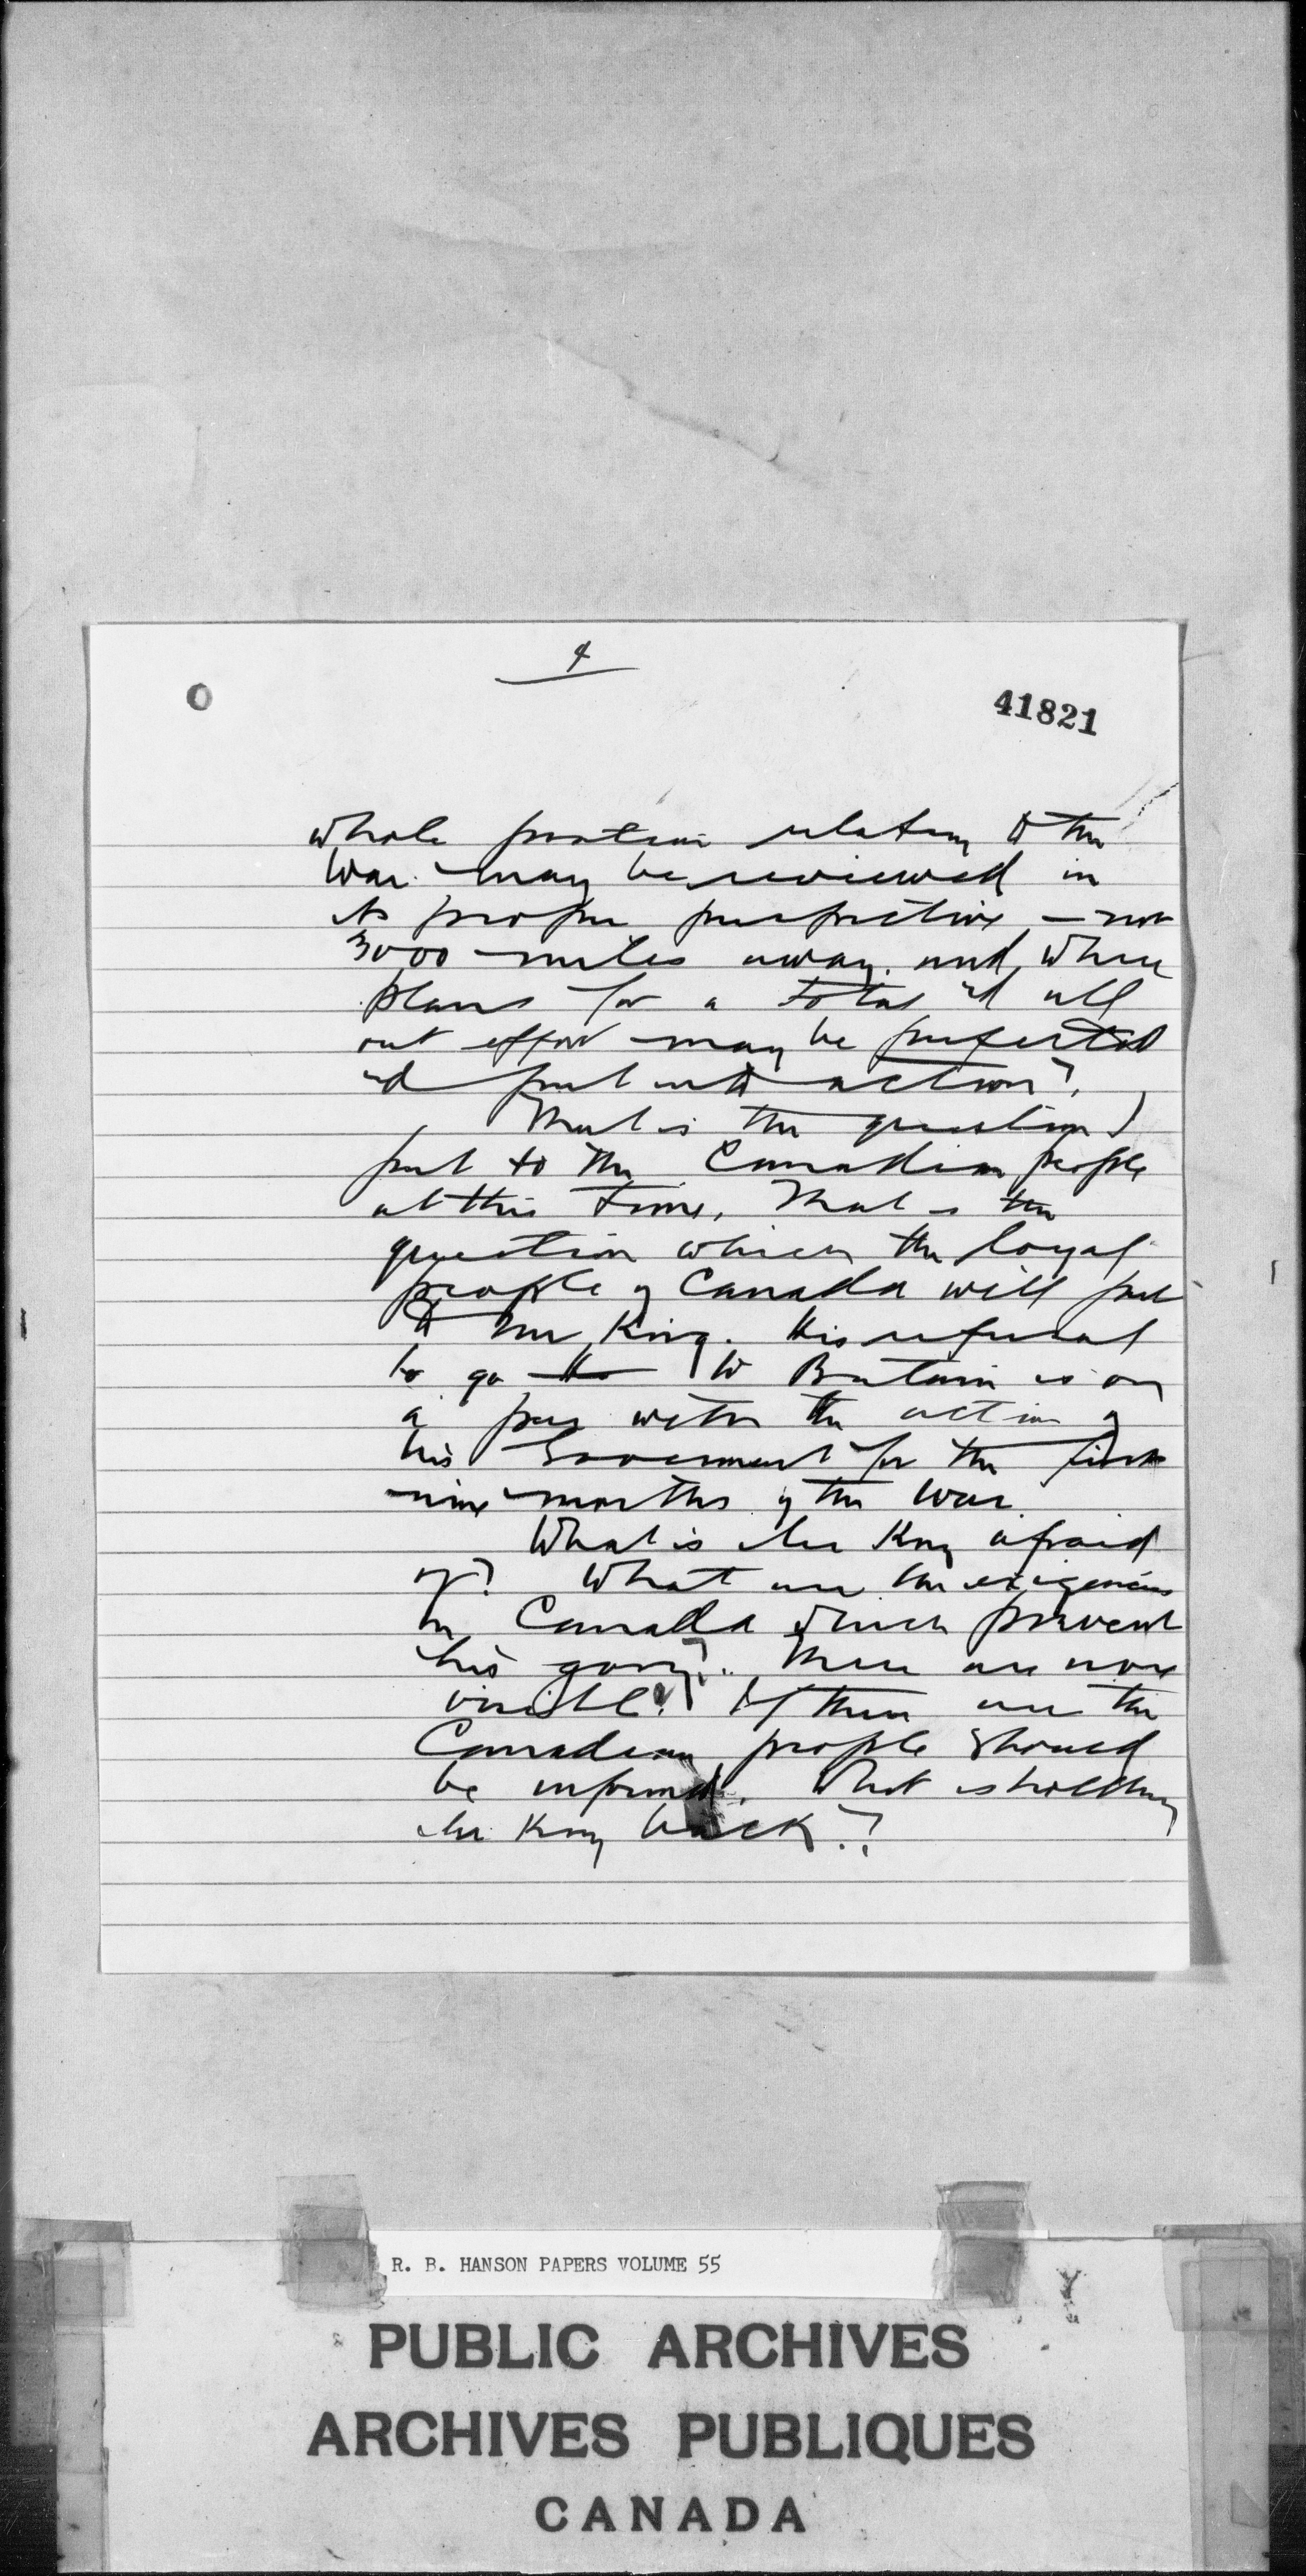 4
41821
whole position relating to the
War may be reviewed in
its proper perspective — not
3000 miles away, and where
plans for a total and all
out effort may be perfected
and put into action?
That is the question I
put to the Canadian people
at this time. That is the
question which the loyal
people of Canada will put
to Mr King. His refusal
to go to Britain is on
a par with the action of
his Government for the first
nine months of the War.
What is Mr King afraid
of? What are the exigencies
in Canada which prevent
his going? There are none
visible. If there are the
Canadian people should
be informed. What is holding
Mr King back?
R. B. HANSON PAPERS VOLUME 55
PUBLIC ARCHIVES
ARCHIVES PUBLIQUES
CANADA